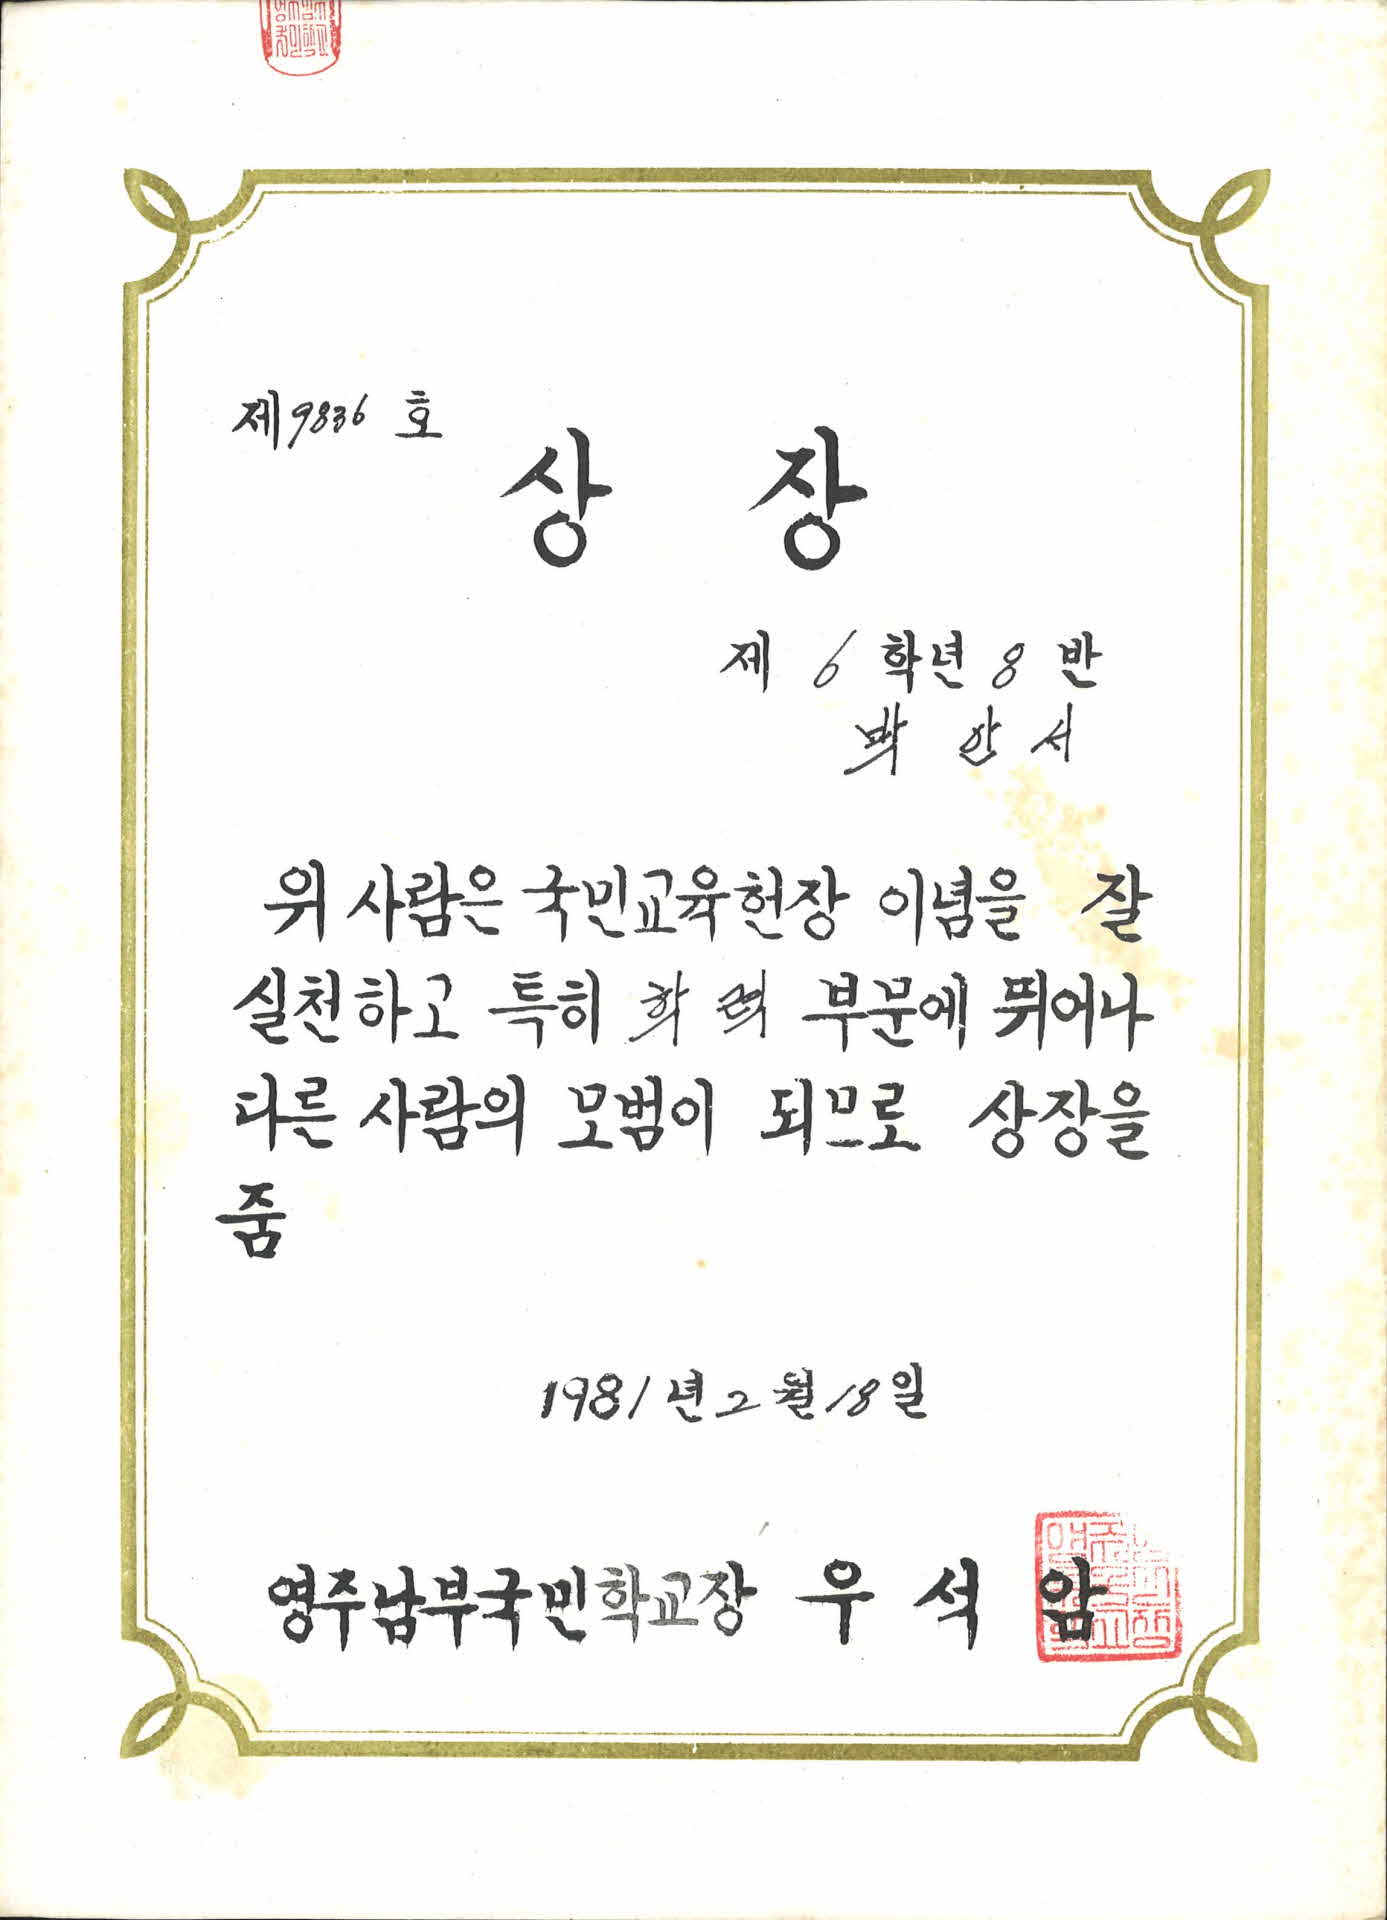 제9836 호
상 장
제 6 학년 8 반
박 안 서
위 사람은 국민교육헌장 이념을 잘
실천하고 특히 학력 부문에 뛰어나
다른 사람의 모범이 되므로 상장을
줌
1981년 2월 18일
영주남부국민학교장 우 석 암